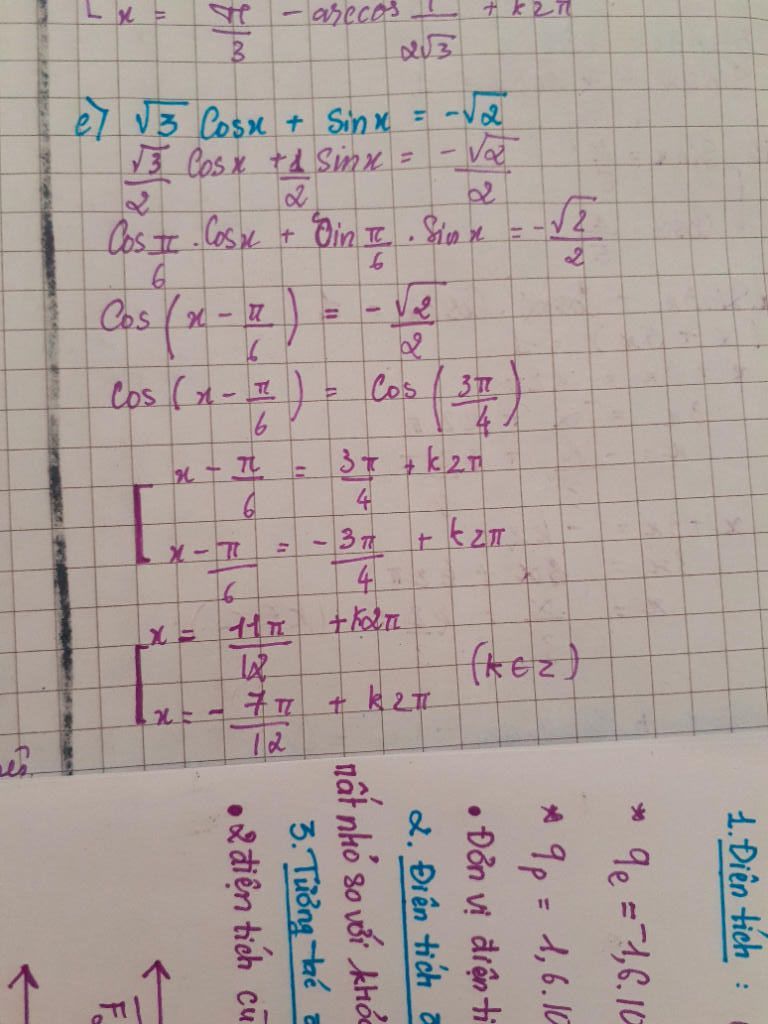 x = π/3 - arccos 1/2√3 + k2π
e) √3 Cosx + Sinx = -√2
√3/2 Cosx + 1/2 Sinx = -√2/2
Cos π/6 . Cosx + Sin π/6 . Sinx = -√2/2
Cos(x - π/6) = -√2/2
cos(x - π/6) = cos(3π/4)
[ x - π/6 = 3π/4 + k2π
x - π/6 = -3π/4 + k2π
[ x = 11π/12 + k2π
(k ∈ z)
x = -7π/12 + k2π
1. Điện tích :
* qe = -1,6.10
* qp = 1,6.10
• Đơn vị điện tí
2. Điện tích
nhỏ so với khoả
3. Tương tác
• 2 điện tích cù
F